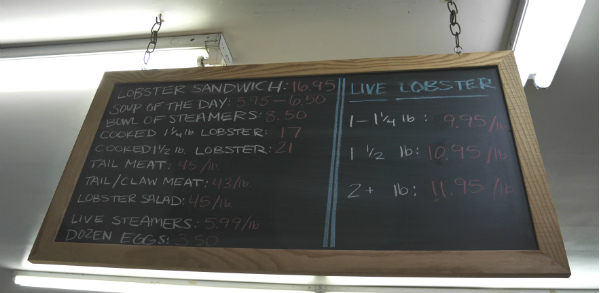 LOBSTER SANDWICH: 16.95
SOUP OF THE DAY: 5.95 - 6.50
BOWL OF STEAMERS: 8.50
COOKED 1 1/4 lb LOBSTER: 17
COOKED 1 1/2 lb. LOBSTER: 21
TAIL MEAT: 45/lb
TAIL/CLAW MEAT: 43/lb
LOBSTER SALAD: 45/lb
LIVE STEAMERS: 5.99/lb
DOZEN EGGS: 3.50
LIVE LOBSTER
1 - 1 1/4 lb: 9.95/lb
1 1/2 lb: 10.95/lb
2+ lb: 11.95/lb